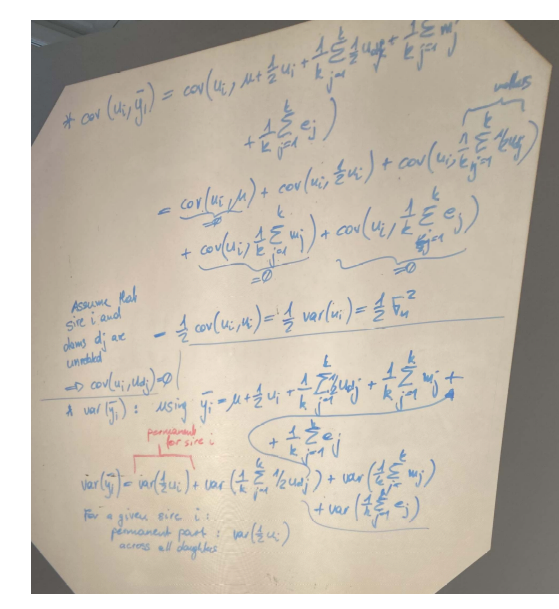 * cov(u_i, ȳ_i) = cov(u_i, μ + 1/2 u_i + 1/k Σ_{j=1}^{k} 1/2 u_{dj} + 1/k Σ_{j=1}^{k} m_j
+ 1/k Σ_{j=1}^{k} e_j)
= cov(u_i, μ) + cov(u_i, 1/2 u_i) + cov(u_i, 1/k Σ_{j=1}^{k} 1/2 u_{dj})
=0
+ cov(u_i, 1/k Σ_{j=1}^{k} m_j) + cov(u_i, 1/k Σ_{j=1}^{k} e_j)
=0 =0
Assume that
sire i and
dams dj are
unrelated
⇒ cov(u_i, u_{dj})=0
= 1/2 cov(u_i, u_i) = 1/2 var(u_i) = 1/2 σ_u^2
var(ȳ_i) : using ȳ_i = μ + 1/2 u_i + 1/k Σ_{j=1}^{k} 1/2 u_{dj} + 1/k Σ_{j=1}^{k} m_j +
+ 1/k Σ_{j=1}^{k} e_j
permanent
for sire i
var(ȳ_i) = var(1/2 u_i) + var(1/k Σ_{j=1}^{k} 1/2 u_{dj}) + var(1/k Σ_{j=1}^{k} m_j)
+ var(1/k Σ_{j=1}^{k} e_j)
For a given sire i :
permanent part : var(1/2 u_i)
across all daughters